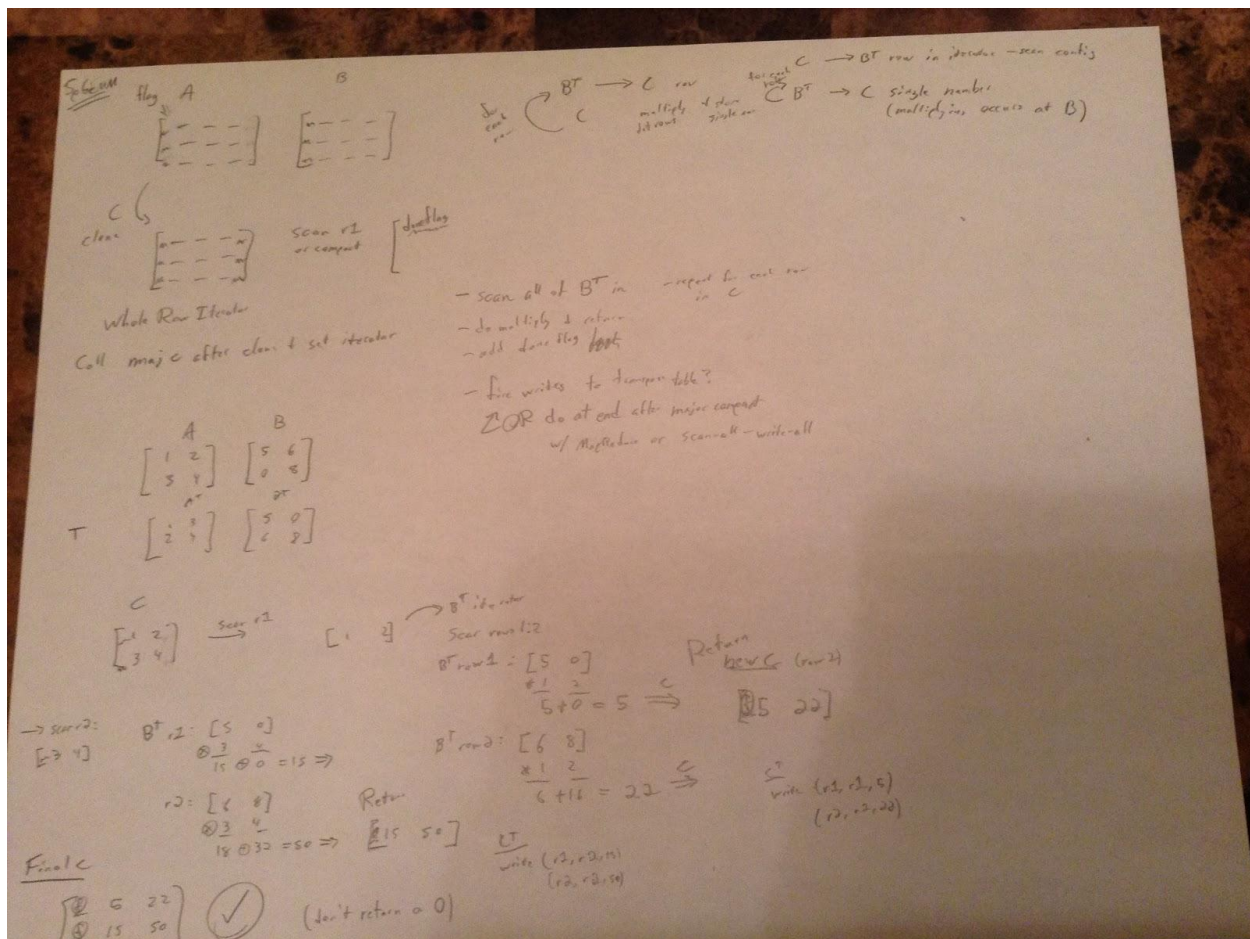 flag A
B
B^T → C row
C
for each row
multiply & return
C → B^T row in iterator - scan config
for each row
B^T → C single number
(multiplying occurs at B)
C
clone
scan r1
or compact
done flag
Whole Row Iterator
Call maj c after clone & set iterator
- scan all of B^T in - repeat for each row
in C
- do multiply & return
- add done flag
- fire writes to transpose table?
OR do at end after major compact
w/ MapReduce or scan-all-write-all
A B
[1 2 [5 6
3 4] 0 8]
T A^T B^T
[1 3 [5 0
2 4] 6 8]
C
[1 2
3 4]
scan r1
[1 2]
B^T iterator
Scan row 1:2
B^T row 1: [5 0]
* 1 2
5 + 0 = 5 ⇒ C
Return
new C (row 2)
[5 22]
B^T row 2: [6 8]
* 1 2
6 + 16 = 22 ⇒ C
C^T
write (r1, r1, 5)
(r2, r2, 22)
→ scan r2:
[3 4]
B^T r1: [5 0]
3 4
15 ⊕ 0 = 15 ⇒
r2: [6 8]
⊗ 3 4
18 ⊕ 32 = 50 ⇒
Return
[15 50]
C^T
write (r2, r2, 15)
(r2, r2, 50)
Final C
[5 22
15 50]
✓
(don't return a 0)